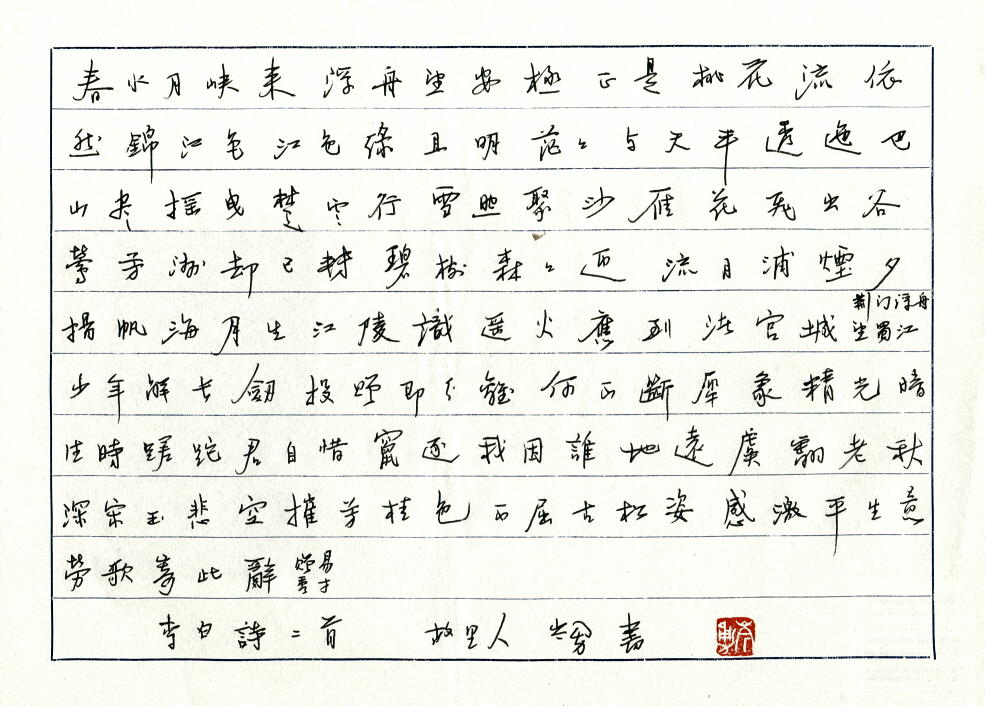 春水月峽來浮舟望安極正是桃花流依
然錦江色江色綠且明茫々与天平逶迤巴
山尽摇曳楚雲行雪照聚沙雁花飛出谷
鶯芳洲却已轉碧樹森々迎流目浦煙夕
揚帆海月生江陵識遥火應到渚宮城荆门浮舟望蜀江
少年解长劍投贈即分離何不斷犀象精光暗
往時蹉跎君自惜竄逐我因誰地遠虞翻老秋
深宋玉悲空摧芳桂色不屈古松姿感激平生意
劳歌寄此辭贈易秀才
李白詩二首 故里人 書